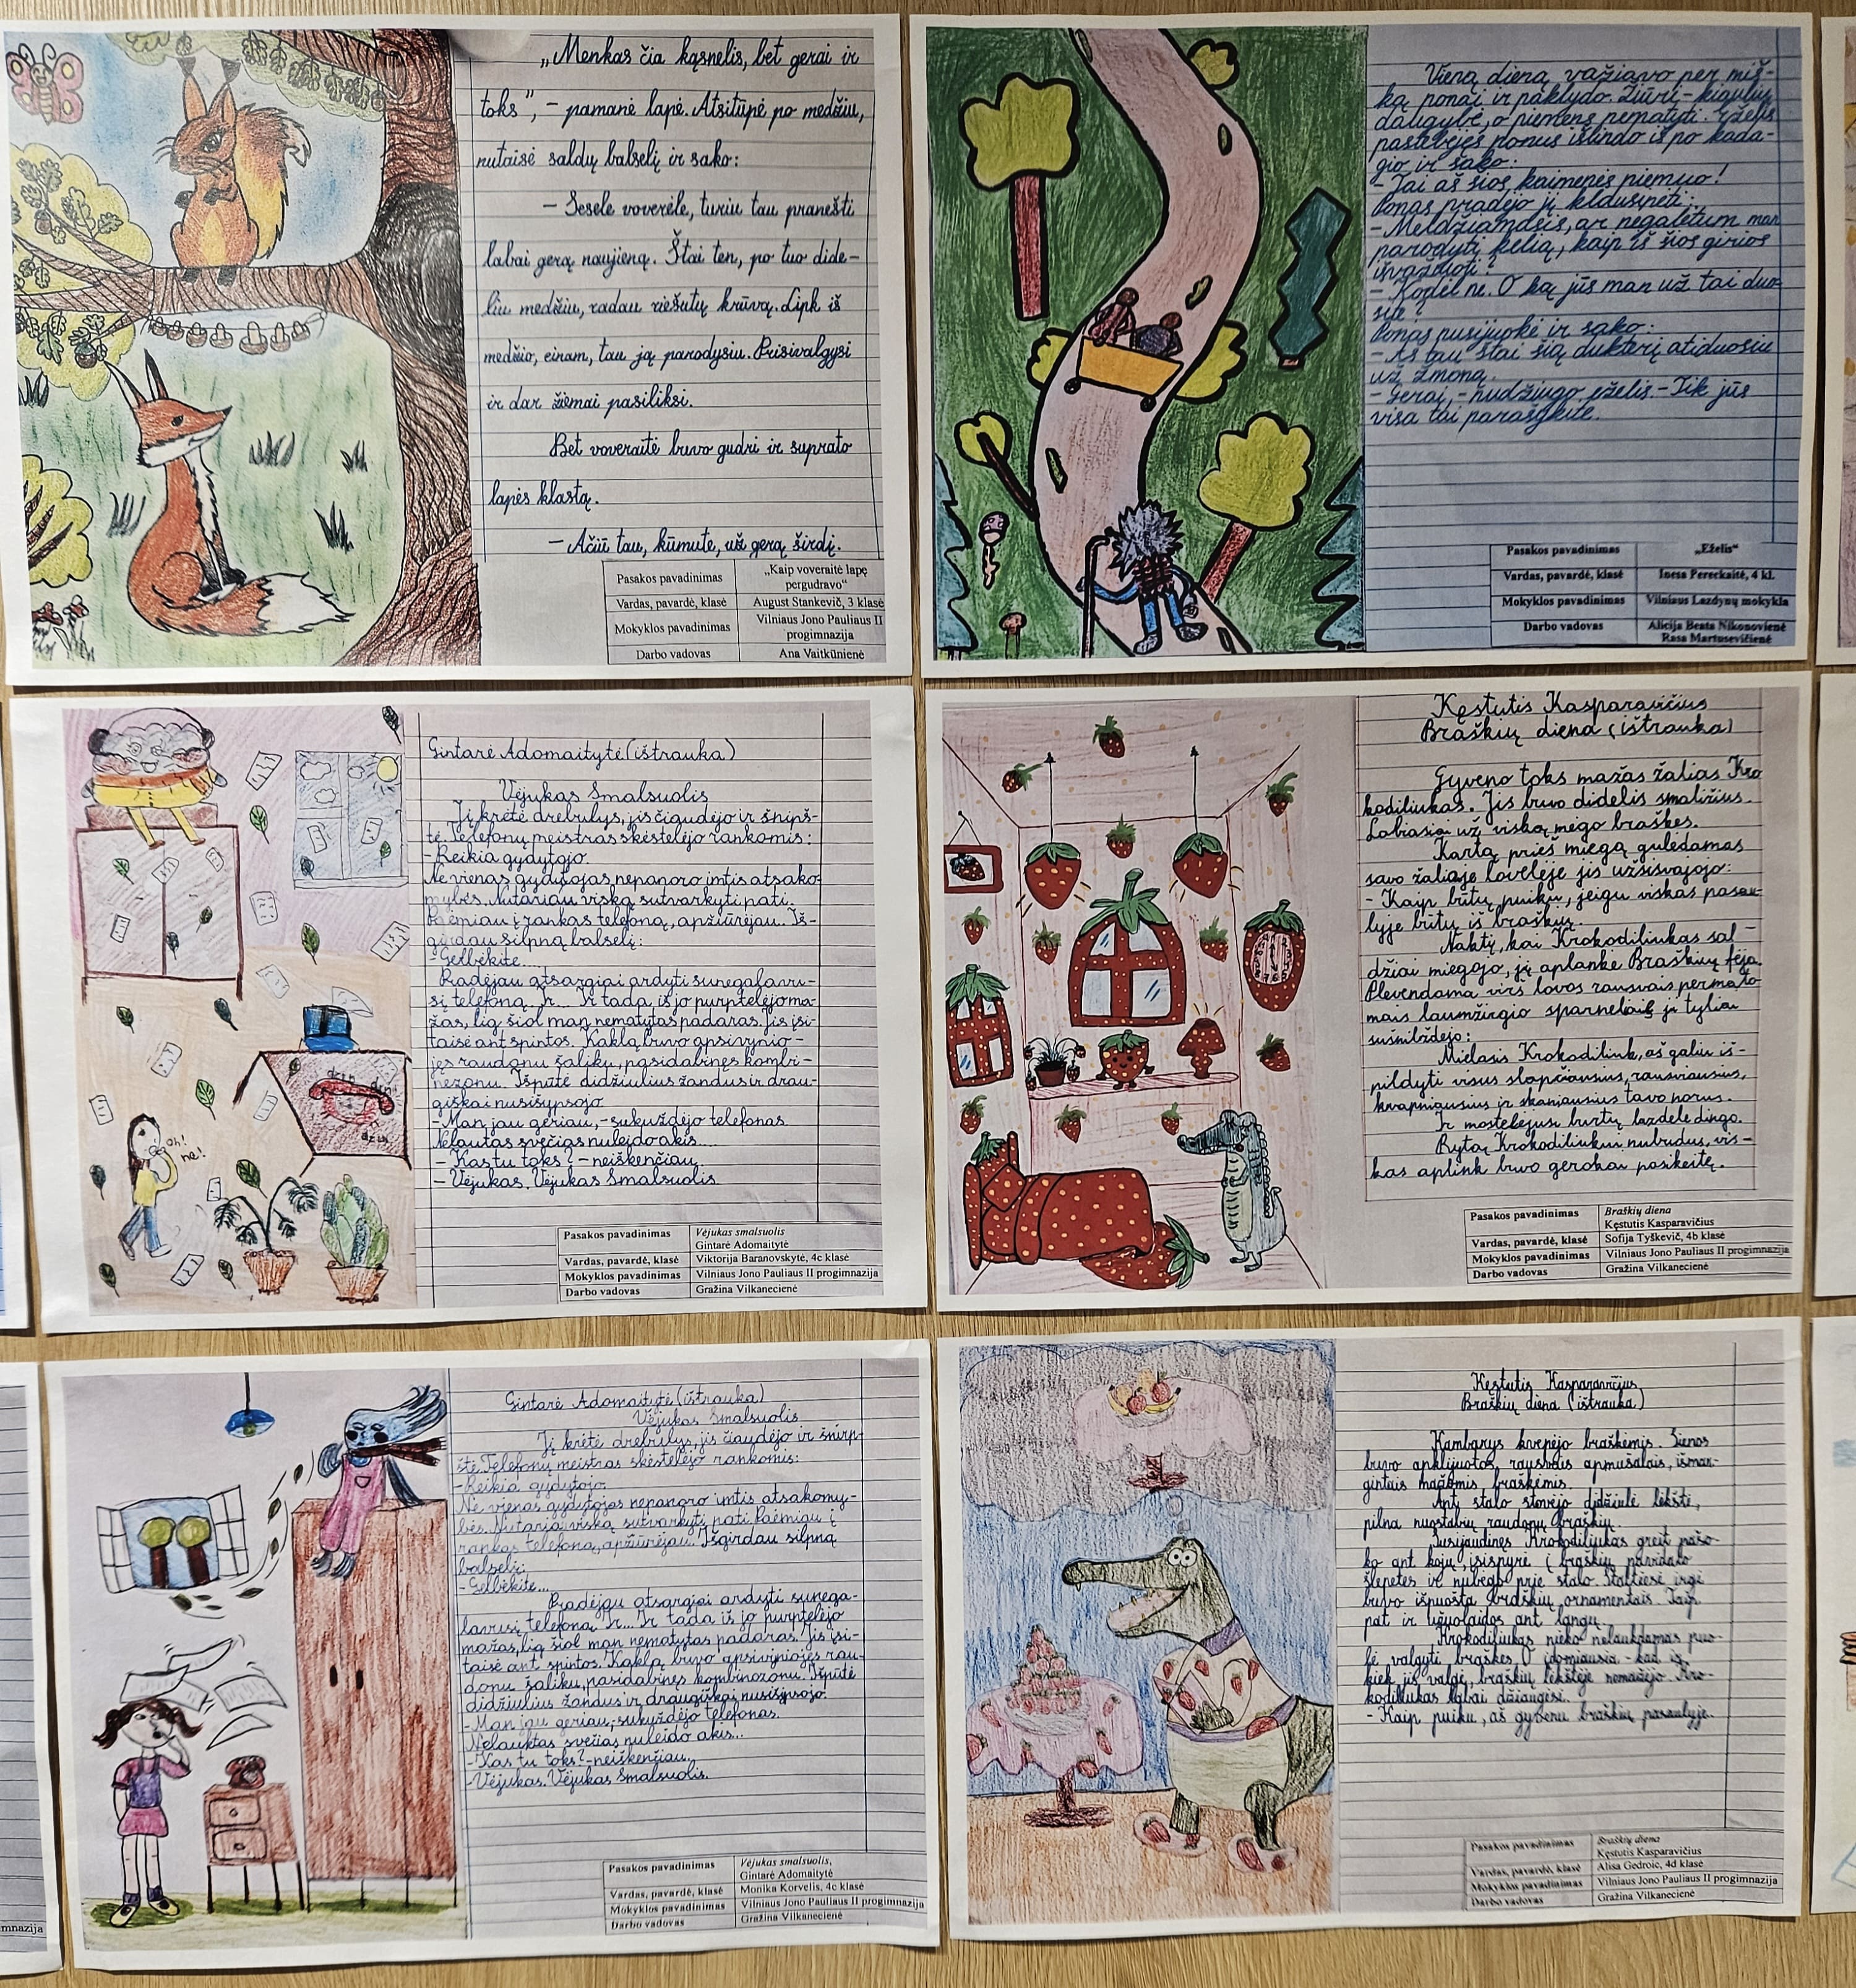 „Menkas čia kąsnelis, bet gerai ir
toks", – pamanė lapė. Atsitūpė po medžiu,
nutaisė saldų balselį ir sako:
– Sesele voverėle, turiu tau pranešti
labai gerą naujieną. Štai ten, po tuo dide-
liu medžiu, radau riešutų krūvą. Lipk iš
medžio, einam, tau ją parodysiu. Prisivalgysi
ir dar žiemai pasiliksi.
Bet voveraitė buvo gudri ir suprato
lapės klastą.
– Ačiū tau, kūmute, už gerą širdį.
Pasakos pavadinimas „Kaip voveraitė lapę
pergudravo“
Vardas, pavardė, klasė August Stankevič, 3 klasė
Mokyklos pavadinimas Vilniaus Jono Pauliaus II
progimnazija
Darbo vadovas Ana Vaitkūnienė
Vieną dieną važiavo per miš-
ką ponai ir paklydo. Žiūri – kiaulių
daugybė, o piemens nematyti. Eželis
pastebėjęs ponus išlindo iš po kada-
gio ir sako:
– Tai aš šios kaimenės piemuo!
Ponas pradėjo jį klausinėti:
– Meldžiamasis, ar negalėtum man
parodyti kelią, kaip iš šios girios
išvažiuoti?
– Kodėl ne. O ką jūs man už tai duo-
sit?
Ponas nusijuokė ir sako:
– Aš tau štai šią dukterį atiduosiu
už žmoną.
– Gerai, – nudžiugo eželis – Tik jūs
visa tai parašykite.
Pasakos pavadinimas „Eželis“
Vardas, pavardė, klasė Inesa Pereckaitė, 4 kl.
Mokyklos pavadinimas Vilniaus Lazdynų mokykla
Darbo vadovas Alicija Beata Nikonovienė
Rasa Martusevičienė
Gintarė Adomaitytė (ištrauka)
Vėjukas Smalsuolis
Jį krėtė drebulys, jis čiaudėjo ir šnirpš-
tė. Telefonų meistras skėstelėjo rankomis:
– Reikia gydytojo.
Ne vienas gydytojas nepanoro imtis atsako-
mybės. Nutariau viską sutvarkyti pati.
Paėmiau į rankas telefoną, apžiūrėjau. Iš-
girdau silpną balselį:
– Gelbėkite...
Pradėjau atsargiai ardyti sunegalavu-
sį telefoną. Ir... Ir tada iš jo purptelėjo ma-
žas, lig šiol man nematytas padaras. Jis įsi-
taisė ant spintos. Kaklą buvo apsivynio-
jęs raudonu šaliku, pasidabinęs kombi-
nezonu. Išpūtė didžiulius žandus ir drau-
giškai nusišypsojo
– Man jau geriau, – sukuždėjo telefonas
Nelauktas svečias nuleido akis...
– Kas tu toks? – neiškenčiau
– Vėjukas. Vėjukas Smalsuolis
dzin dzin
dzin
oh!
ne!
Pasakos pavadinimas Vėjukas smalsuolis
Gintarė Adomaitytė
Vardas, pavardė, klasė Viktorija Baranovskytė, 4c klasė
Mokyklos pavadinimas Vilniaus Jono Pauliaus II progimnazija
Darbo vadovas Gražina Vilkanecienė
Kęstutis Kasparavičius
Braškių diena (ištrauka)
Gyveno toks mažas žalias Kro
kodiliukas. Jis buvo didelis smaližius.
Labiausiai už viską mėgo braškes.
Kartą prieš miegą gulėdamas
savo žalioje lovelėje jis užsisvajojo:
– Kaip būtų puiku, jeigu viskas pasau-
lyje būtų iš braškių.
Naktį, kai Krokodiliukas sal-
džiai miegojo, jį aplankė Braškių fėja.
Plevendama virš lovos rausvais permato
mais laumžirgio sparneliais ji tyliai
sušnibždėjo:
Mielasis Krokodiliuk, aš galiu iš-
pildyti visus slapčiausius, rausviausius,
kvapniausius ir skaniausius tavo norus.
Ir mostelėjusi burtų lazdele dingo.
Rytą Krokodiliukui nubudus, vis-
kas aplink buvo gerokai pasikeitę.
Pasakos pavadinimas Braškių diena
Kęstutis Kasparavičius
Vardas, pavardė, klasė Sofija Tyškevič, 4b klasė
Mokyklos pavadinimas Vilniaus Jono Pauliaus II progimnazija
Darbo vadovas Gražina Vilkanecienė
Gintarė Adomaitytė (ištrauka)
Vėjukas Smalsuolis
Jį krėtė drebulys, jis čiaudėjo ir šnirp-
štė. Telefonų meistras skėstelėjo rankomis:
– Reikia gydytojo.
Ne vienas gydytojas nepanoro imtis atsakomy-
bės. Nutariau viską sutvarkyti pati. Paėmiau į
rankas telefoną, apžiūrėjau. Išgirdau silpną
balselį:
– Gelbėkite...
Pradėjau atsargiai ardyti sunega-
lavusį telefoną. Ir... Ir tada iš jo purptelėjo
mažas, lig šiol man nematytas padaras. Jis įsi-
taisė ant spintos. Kaklą buvo apsivyniojęs rau-
donu šaliku, pasidabinęs kombinezonu. Išpūtė
didžiulius žandus ir draugiškai nusišypsojo.
– Man jau geriau, – sukuždėjo telefonas.
Nelauktas svečias nuleido akis...
– Kas tu toks? – neiškenčiau.
– Vėjukas. Vėjukas Smalsuolis.
Pasakos pavadinimas Vėjukas smalsuolis,
Gintarė Adomaitytė
Vardas, pavardė, klasė Monika Korvelis, 4c klasė
Mokyklos pavadinimas Vilniaus Jono Pauliaus II progimnazija
Darbo vadovas Gražina Vilkanecienė
Kęstutis Kasparavičius
Braškių diena (ištrauka)
Kambarys kvepėjo braškėmis. Sienos
buvo apklijuotos rausvais apmušalais, išmar-
gintais mažomis braškėmis.
Ant stalo stovėjo didžiulė lėkštė,
pilna nuostabių raudonų braškių.
Susijaudinęs Krokodiliukas greit pašo-
ko ant kojų, įsispyrė į braškių pavidalo
šlepetes ir nubėgo prie stalo. Staltiesė irgi
buvo išpuošta braškių ornamentais. Taip
pat ir užuolaidos ant langų.
Krokodiliukas nieko nelaukdamas puo-
lė valgyti braškes. O įdomiausia – kad ir
kiek jis valgė, braškių lėkštėje nemažėjo. Kro-
kodiliukas labai džiaugėsi.
– Kaip puiku, aš gyvenu braškių pasaulyje.
Pasakos pavadinimas Braškių diena
Kęstutis Kasparavičius
Vardas, pavardė, klasė Alisa Gedroic, 4d klasė
Mokyklos pavadinimas Vilniaus Jono Pauliaus II progimnazija
Darbo vadovas Gražina Vilkanecienė